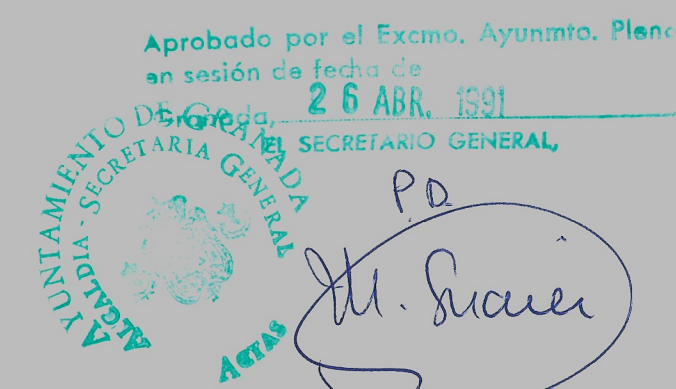 Aprobado por el Excmo. Ayunmto. Pleno
en sesión de fecha de
Granada, 26 ABR. 1991
EL SECRETARIO GENERAL,
P.D.
AYUNTAMIENTO DE GRANADA
ALCALDIA - SECRETARIA GENERAL
ACTAS
M. Suarez